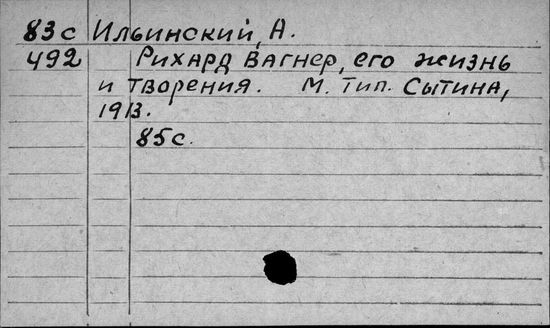 83с Ильинский, А.
492 Рихард Вагнер, его жизнь
и творения. М. Тип. Сытина,
1913.
85с.